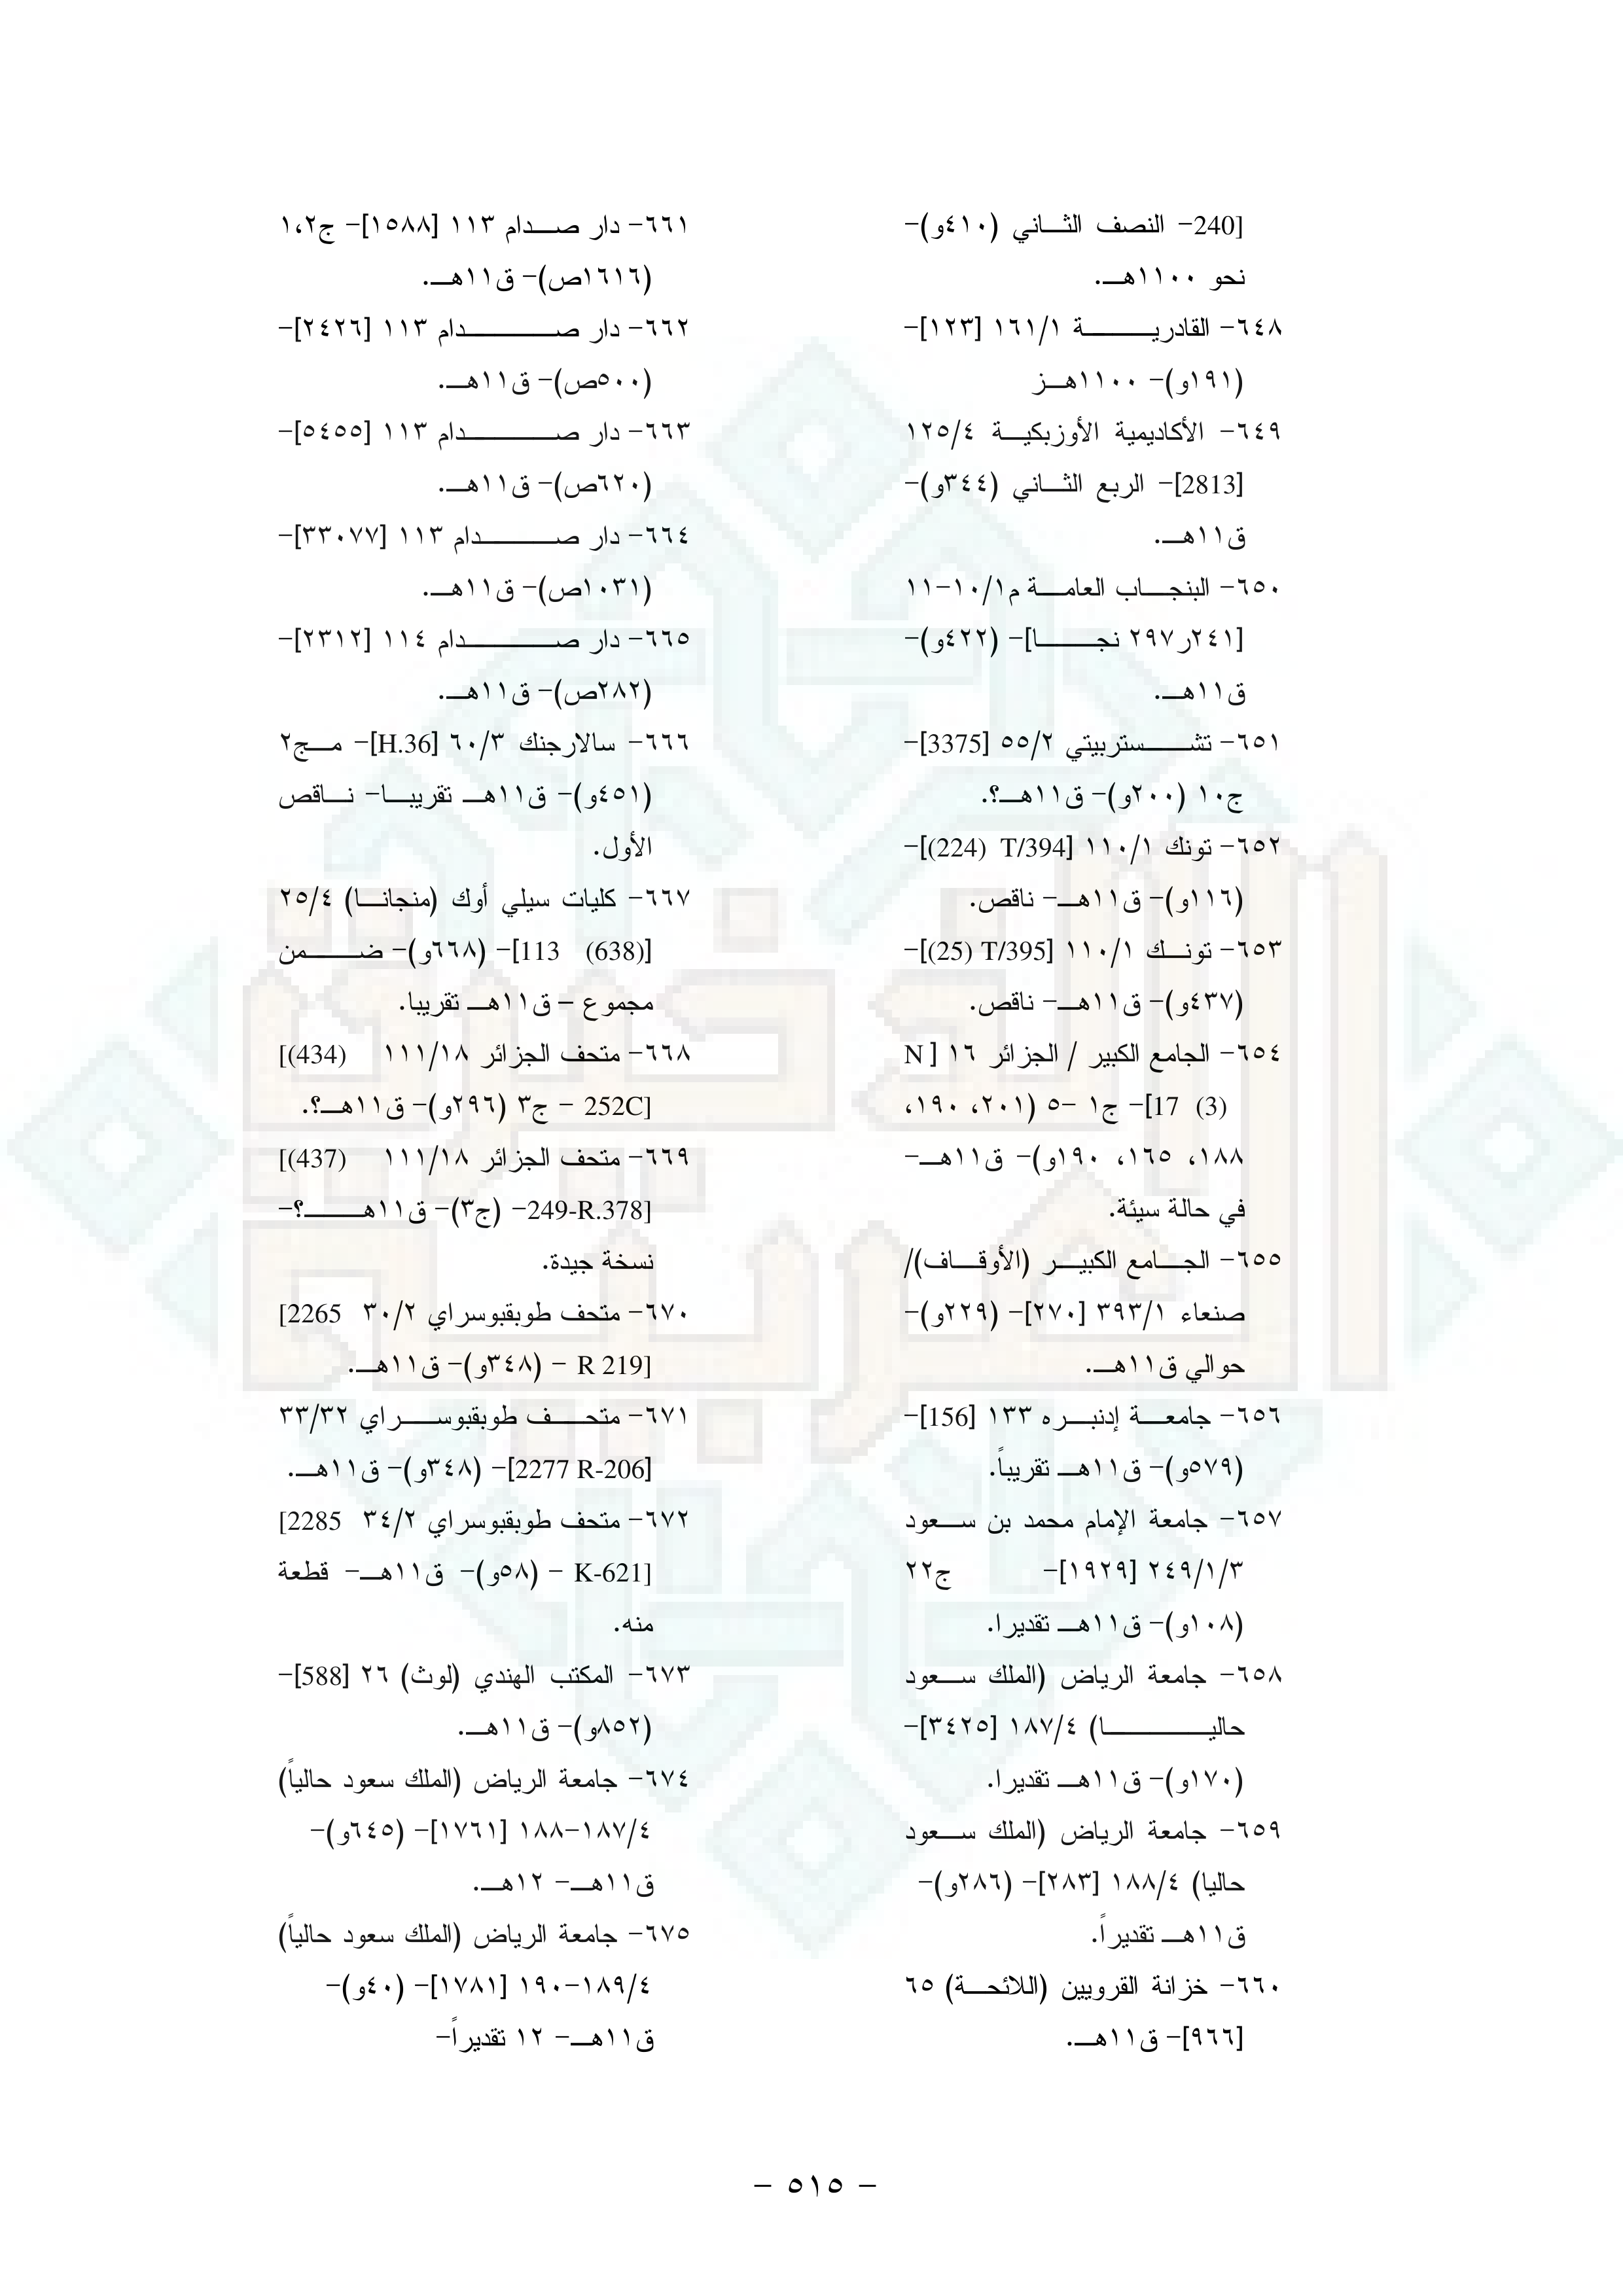 240]- النصف الثاني (٤١٠و)-
نحو ١١٠٠هـ.
٦٤٨- القادرية ١٦١/١ [١٢٣]-
(١٩١و)- ١١٠٠هـز
٦٤٩- الأكاديمية الأوزبكية ١٢٥/٤
[2813]- الربع الثاني (٣٤٤و)-
ق١١هـ.
٦٥٠- البنجاب العامة م١٠/١-١١
[٢٤١ر٢٩٧ نجا]- (٤٢٢و)-
ق١١هـ.
٦٥١- تشستربيتي ٥٥/٢ [3375]-
ج١٠ (٢٠٠و)- ق١١هـ؟.
٦٥٢- تونك ١١٠/١ [T/394 (224)]-
(١١٦و)- ق١١هـ- ناقص.
٦٥٣- تونك ١١٠/١ [T/395 (25)]-
(٤٣٧و)- ق١١هـ- ناقص.
٦٥٤- الجامع الكبير / الجزائر ١٦ [N
17 (3)]- ج١ -٥ (٢٠١، ١٩٠،
١٨٨، ١٦٥، ١٩٠و)- ق١١هـ-
في حالة سيئة.
٦٥٥- الجامع الكبير (الأوقاف)/
صنعاء ٣٩٣/١ [٢٧٠]- (٢٢٩و)-
حوالي ق١١هـ.
٦٥٦- جامعة إدنبره ١٣٣ [156]-
(٥٧٩و)- ق١١هـ تقريباً.
٦٥٧- جامعة الإمام محمد بن سعود
٢٤٩/١/٣ [١٩٢٩]- ج٢٢
(١٠٨و)- ق١١هـ تقديرا.
٦٥٨- جامعة الرياض (الملك سعود
حاليا) ١٨٧/٤ [٣٤٢٥]-
(١٧٠و)- ق١١هـ تقديرا.
٦٥٩- جامعة الرياض (الملك سعود
حاليا) ١٨٨/٤ [٢٨٣]- (٢٨٦و)-
ق١١هـ تقديراً.
٦٦٠- خزانة القرويين (اللائحة) ٦٥
[٩٦٦]- ق١١هـ.
٦٦١- دار صدام ١١٣ [١٥٨٨]- ج١،٢
(١٦١٦ص)- ق١١هـ.
٦٦٢- دار صدام ١١٣ [٢٤٢٦]-
(٥٠٠ص)- ق١١هـ.
٦٦٣- دار صدام ١١٣ [٥٤٥٥]-
(٦٢٠ص)- ق١١هـ.
٦٦٤- دار صدام ١١٣ [٣٣٠٧٧]-
(١٠٣١ص)- ق١١هـ.
٦٦٥- دار صدام ١١٤ [٢٣١٢]-
(٢٨٢ص)- ق١١هـ.
٦٦٦- سالارجنك ٦٠/٣ [H.36]- مج٢
(٤٥١و)- ق١١هـ تقريبا- ناقص
الأول.
٦٦٧- كليات سيلي أوك (منجانا) ٢٥/٤
[113 (638)]- (٦٦٨و)- ضمن
مجموع – ق١١هـ تقريبا.
٦٦٨- متحف الجزائر ١١١/١٨ [(434)
252C] - ج٣ (٢٩٦و)- ق١١هـ؟.
٦٦٩- متحف الجزائر ١١١/١٨ [(437)
249-R.378]- (ج٣)- ق١١هـ؟-
نسخة جيدة.
٦٧٠- متحف طوبقبوسراي ٣٠/٢ [2265
R 219] - (٣٤٨و)- ق١١هـ.
٦٧١- متحف طوبقبوسراي ٣٣/٣٢
[2277 R-206]- (٣٤٨و)- ق١١هـ.
٦٧٢- متحف طوبقبوسراي ٣٤/٢ [2285
K-621] - (٥٨و)- ق١١هـ- قطعة
منه.
٦٧٣- المكتب الهندي (لوث) ٢٦ [588]-
(٨٥٢و)- ق١١هـ.
٦٧٤- جامعة الرياض (الملك سعود حالياً)
١٨٧/٤-١٨٨ [١٧٦١]- (٦٤٥و)-
ق١١هـ- ١٢هـ.
٦٧٥- جامعة الرياض (الملك سعود حالياً)
١٨٩/٤-١٩٠ [١٧٨١]- (٤٠و)-
ق١١هـ- ١٢ تقديراً-
- ٥١٥ -